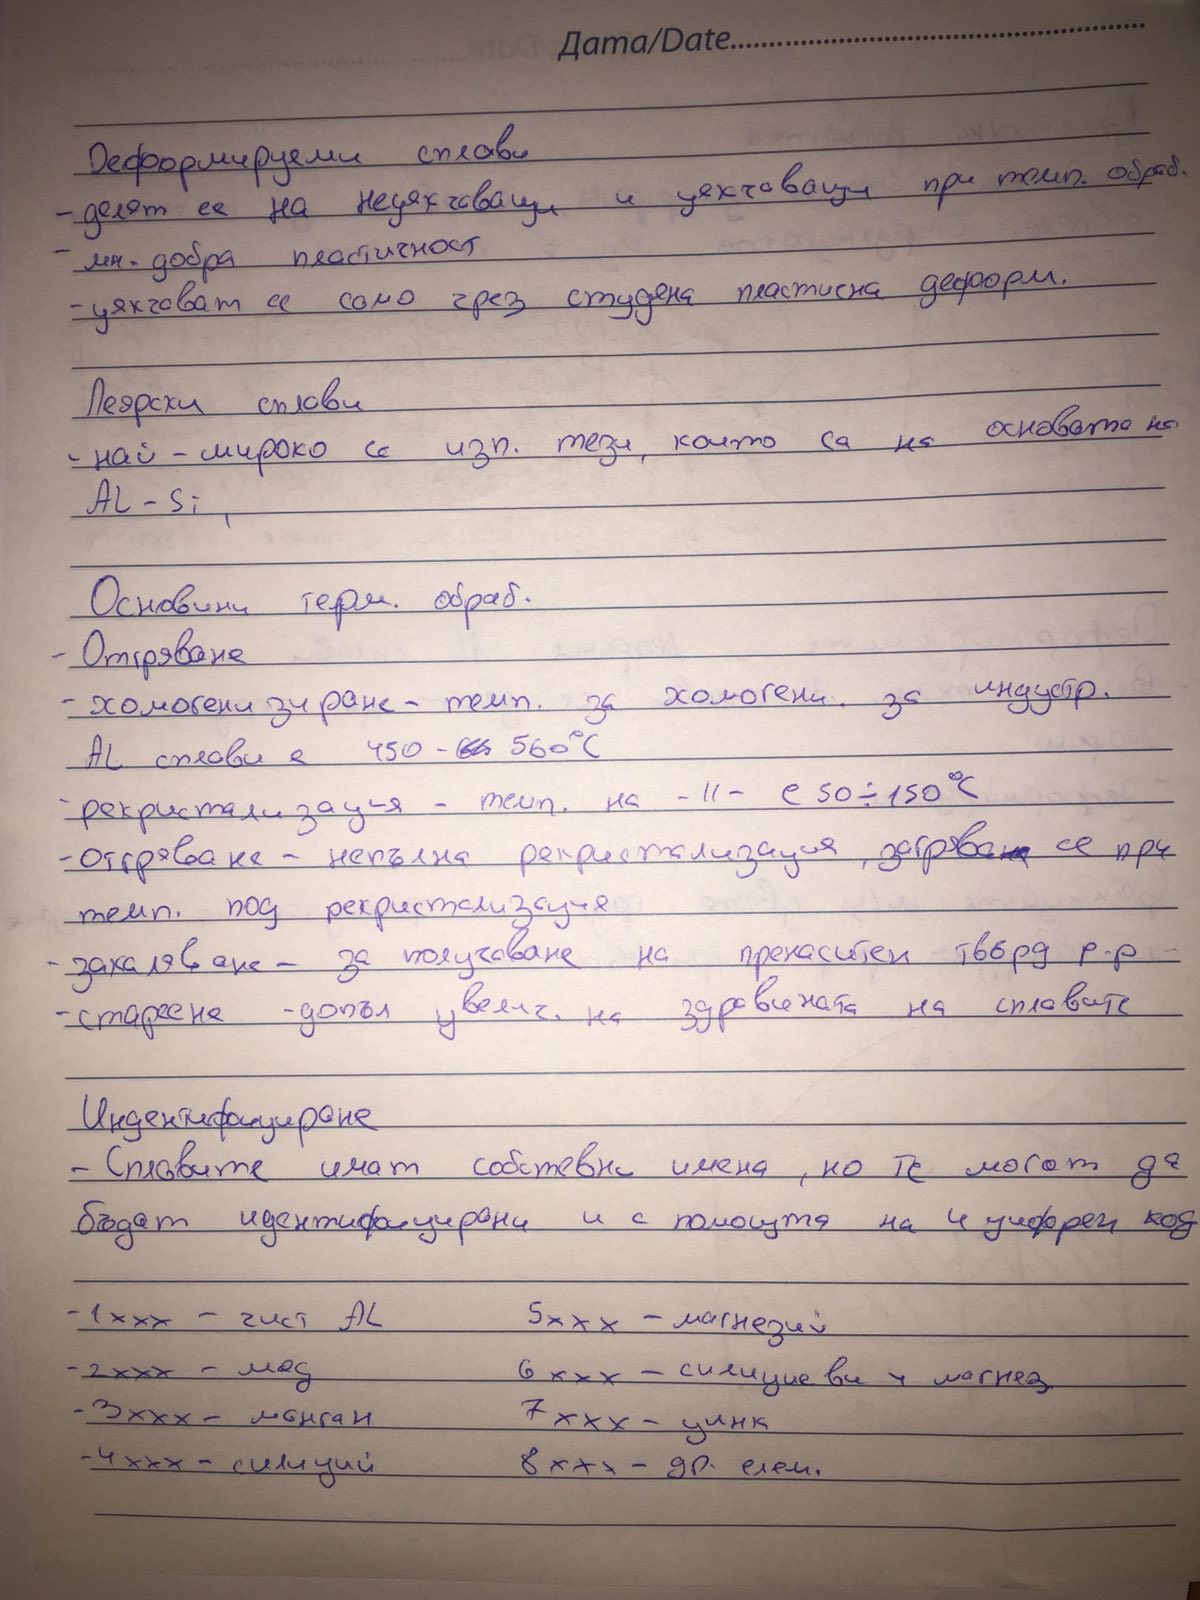 Дата/Date
Деформируеми сплави
- делят се на неуякчаващи и уякчаващи при темп. обраб.
- мн. добра пластичност
- уякчават се само чрез студена пластисна деформ.
Леярски сплави
- най-широко се изп. тези, които са на основата на
AL - Si,
Основини терм. обраб.
- Отгряване
- хомогенизиране - темп. за хомогени. за индустр.
AL сплави е 450 - 560°C
- рекристализация - темп. на -11- е 50÷150°C
- отгряване - непълна рекристализация, загрява се при
темп. под рекристализация
- закаляване - за получаване на пренаситен твърд р-р
- стареене - допъл увелич. на здравината на сплавите
Индентифициране
- Сплавите имат собствени имена, но те могат да
бъдат идентифицирани и с помощта на 4 цифрен код
- 1xxx - чист AL 5xxx - магнезий
- 2xxx - мед 6xxx - силициеви и магнез
- 3xxx - манган 7xxx - цинк
- 4xxx - силиций 8xxx - др. елем.